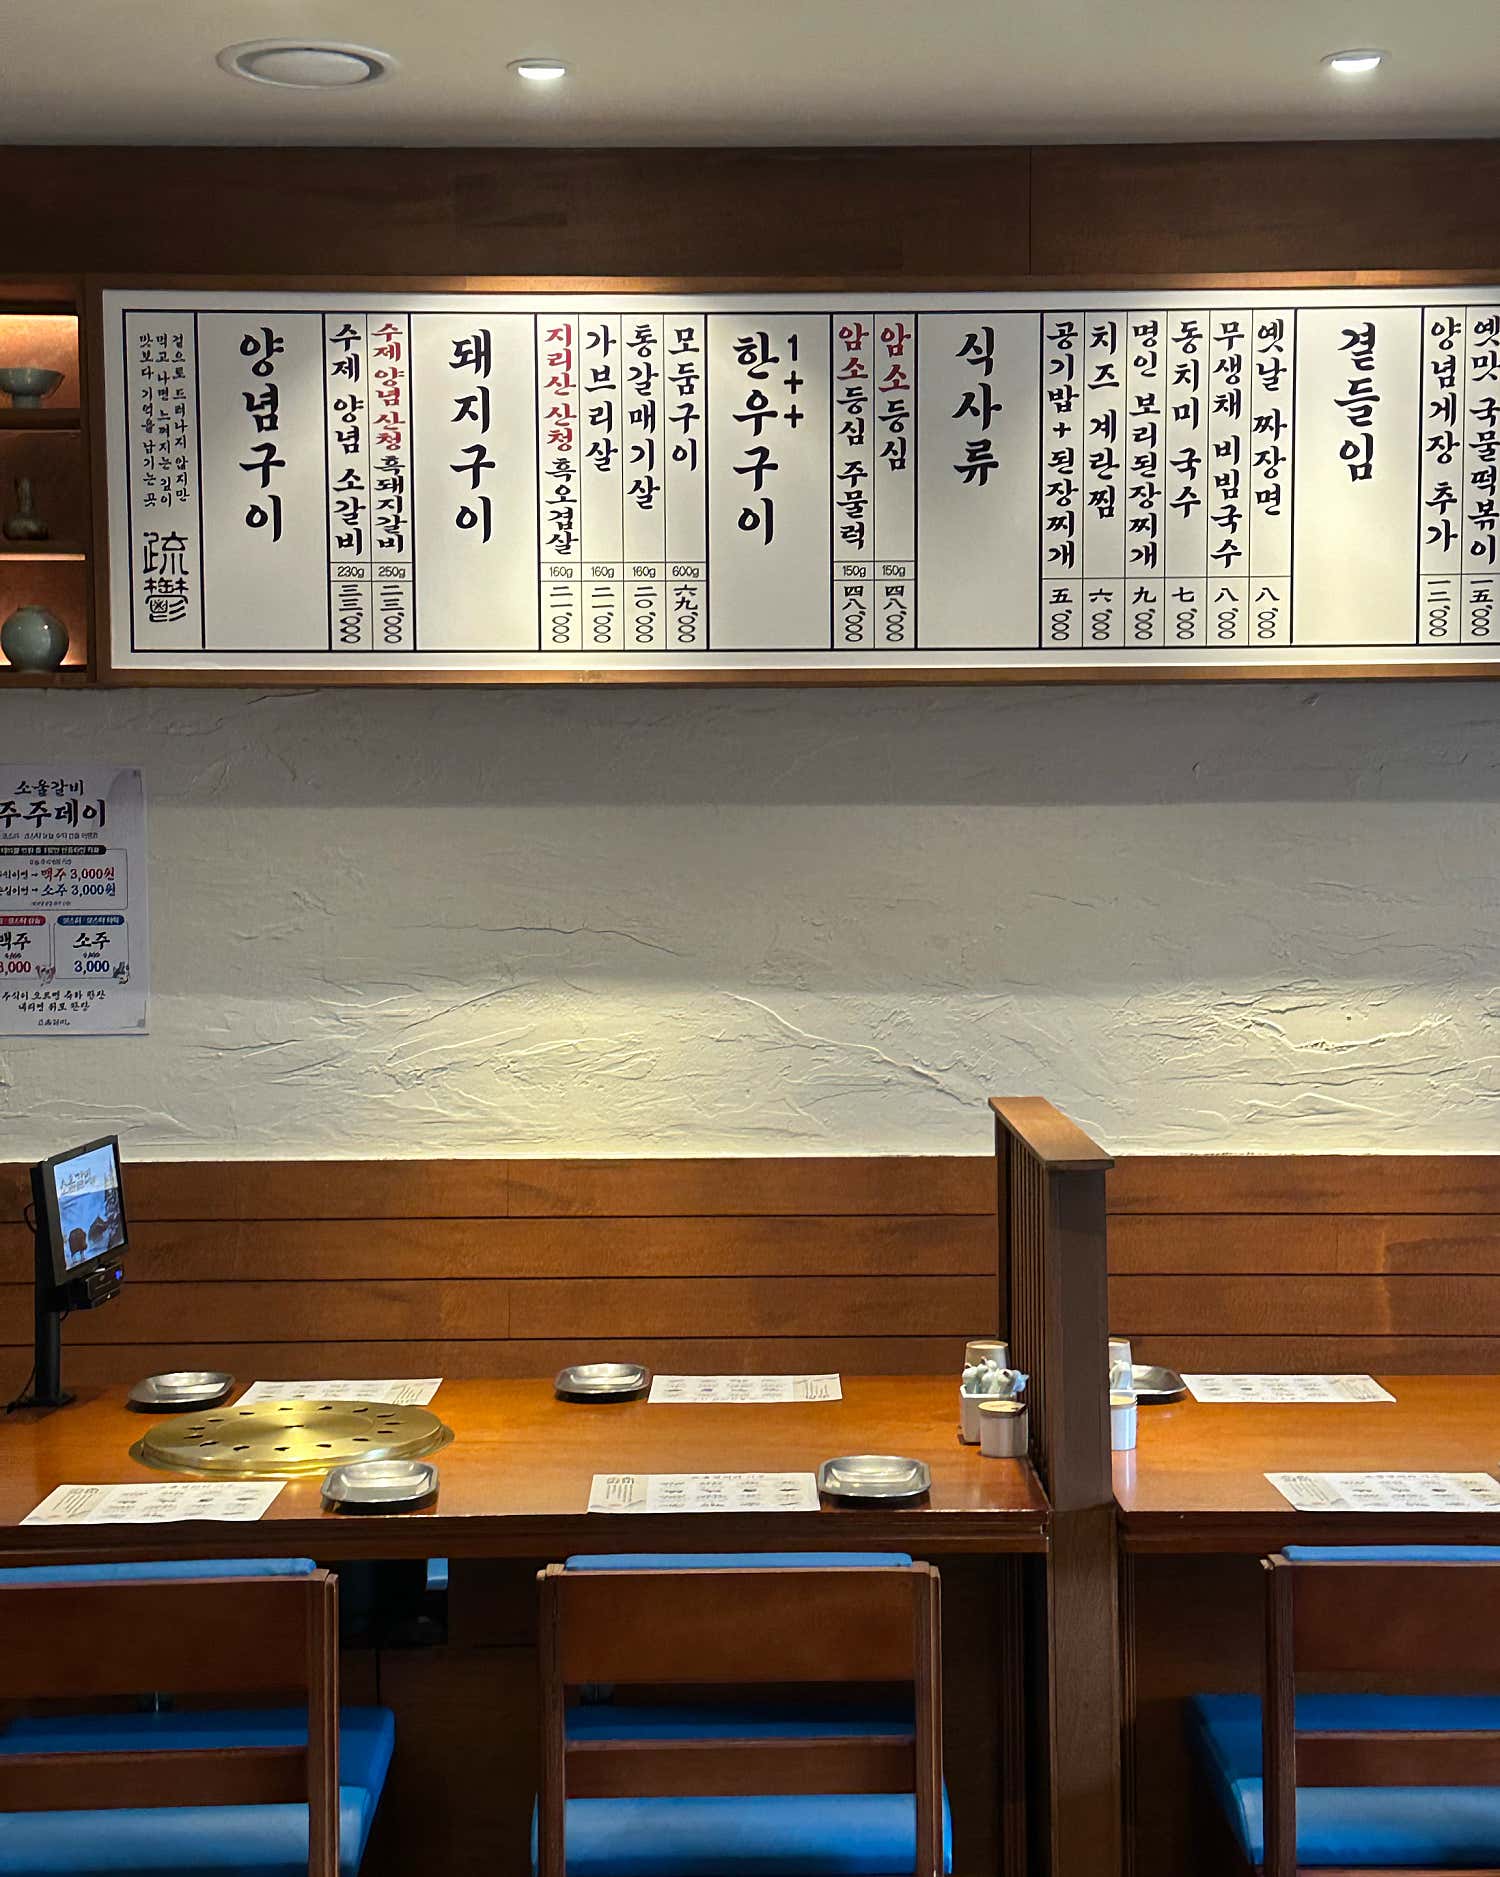 겉으로 드러나지 않지만
먹고 나면 느껴지는 깊이
맛보다 기억을 남기는 곳
양념구이
수제 양념 소갈비
230g
三三,000
수제 양념 산청 흑돼지갈비
250g
二三,000
돼지구이
지리산 산청 흑오겹살
160g
二一,000
가브리살
160g
二一,000
통갈매기살
160g
二0,000
모둠구이
600g
六九,000
한우구이
1++
암소등심 주물럭
150g
四八,000
암소등심
150g
四八,000
식사류
공기밥+된장찌개
五,000
치즈 계란찜
六,000
명인 보리된장찌개
九,000
동치미 국수
七,000
무생채 비빔국수
八,000
옛날 짜장면
八,000
곁들임
양념게장 추가
一二,000
옛맛 국물떡볶이
一五,000
소울갈비
주주데이
맥주 3,000원
소주 3,000원
맥주
소주
3,000
3,000
주식이 오르면 축하 한잔
내리면 위로 한잔
소울갈비